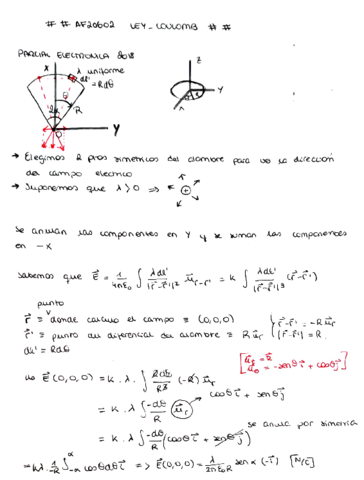 # # AF20602 LEY_COULOMB # #
PARCIAL ELECTRONICA 2018
λ uniforme
dl' = Rdθ
X
Z
Y
R
Y
→ Elegimos 2 ptos simetricos del alambre para ver la dirección
del campo electrico
→ Suponemos que λ > 0 ⇒
Se anulan las componentes en Y y se suman las componentes
en -x
Sabemos que E⃗ = 1/4πε₀ ∫ λdl'/|r⃗-r⃗'|² u⃗r-r' = k ∫ λdl'/|r⃗-r⃗'|³ (r⃗-r⃗')
punto
r⃗ ≡ donde calculo el campo = (0,0,0) { r⃗-r⃗' = -R u⃗r
r⃗' ≡ punto del diferencial de alambre = R u⃗r |r⃗-r⃗'| = R
dl' = Rdθ
E⃗(0,0,0) = k · λ · ∫ Rdθ/R³ (-R) u⃗r
= k · λ ∫ -dθ/R u⃗r → cosθ i⃗ + senθ j⃗
se anula por simetria
= k · λ ∫ -dθ/R (cosθ i⃗ + senθ j⃗)
= kλ · 1/-R ∫ -α α cosθdθ i⃗ ⇒ E⃗(0,0,0) = λ/2πε₀R sen α (-i⃗) [N/C]